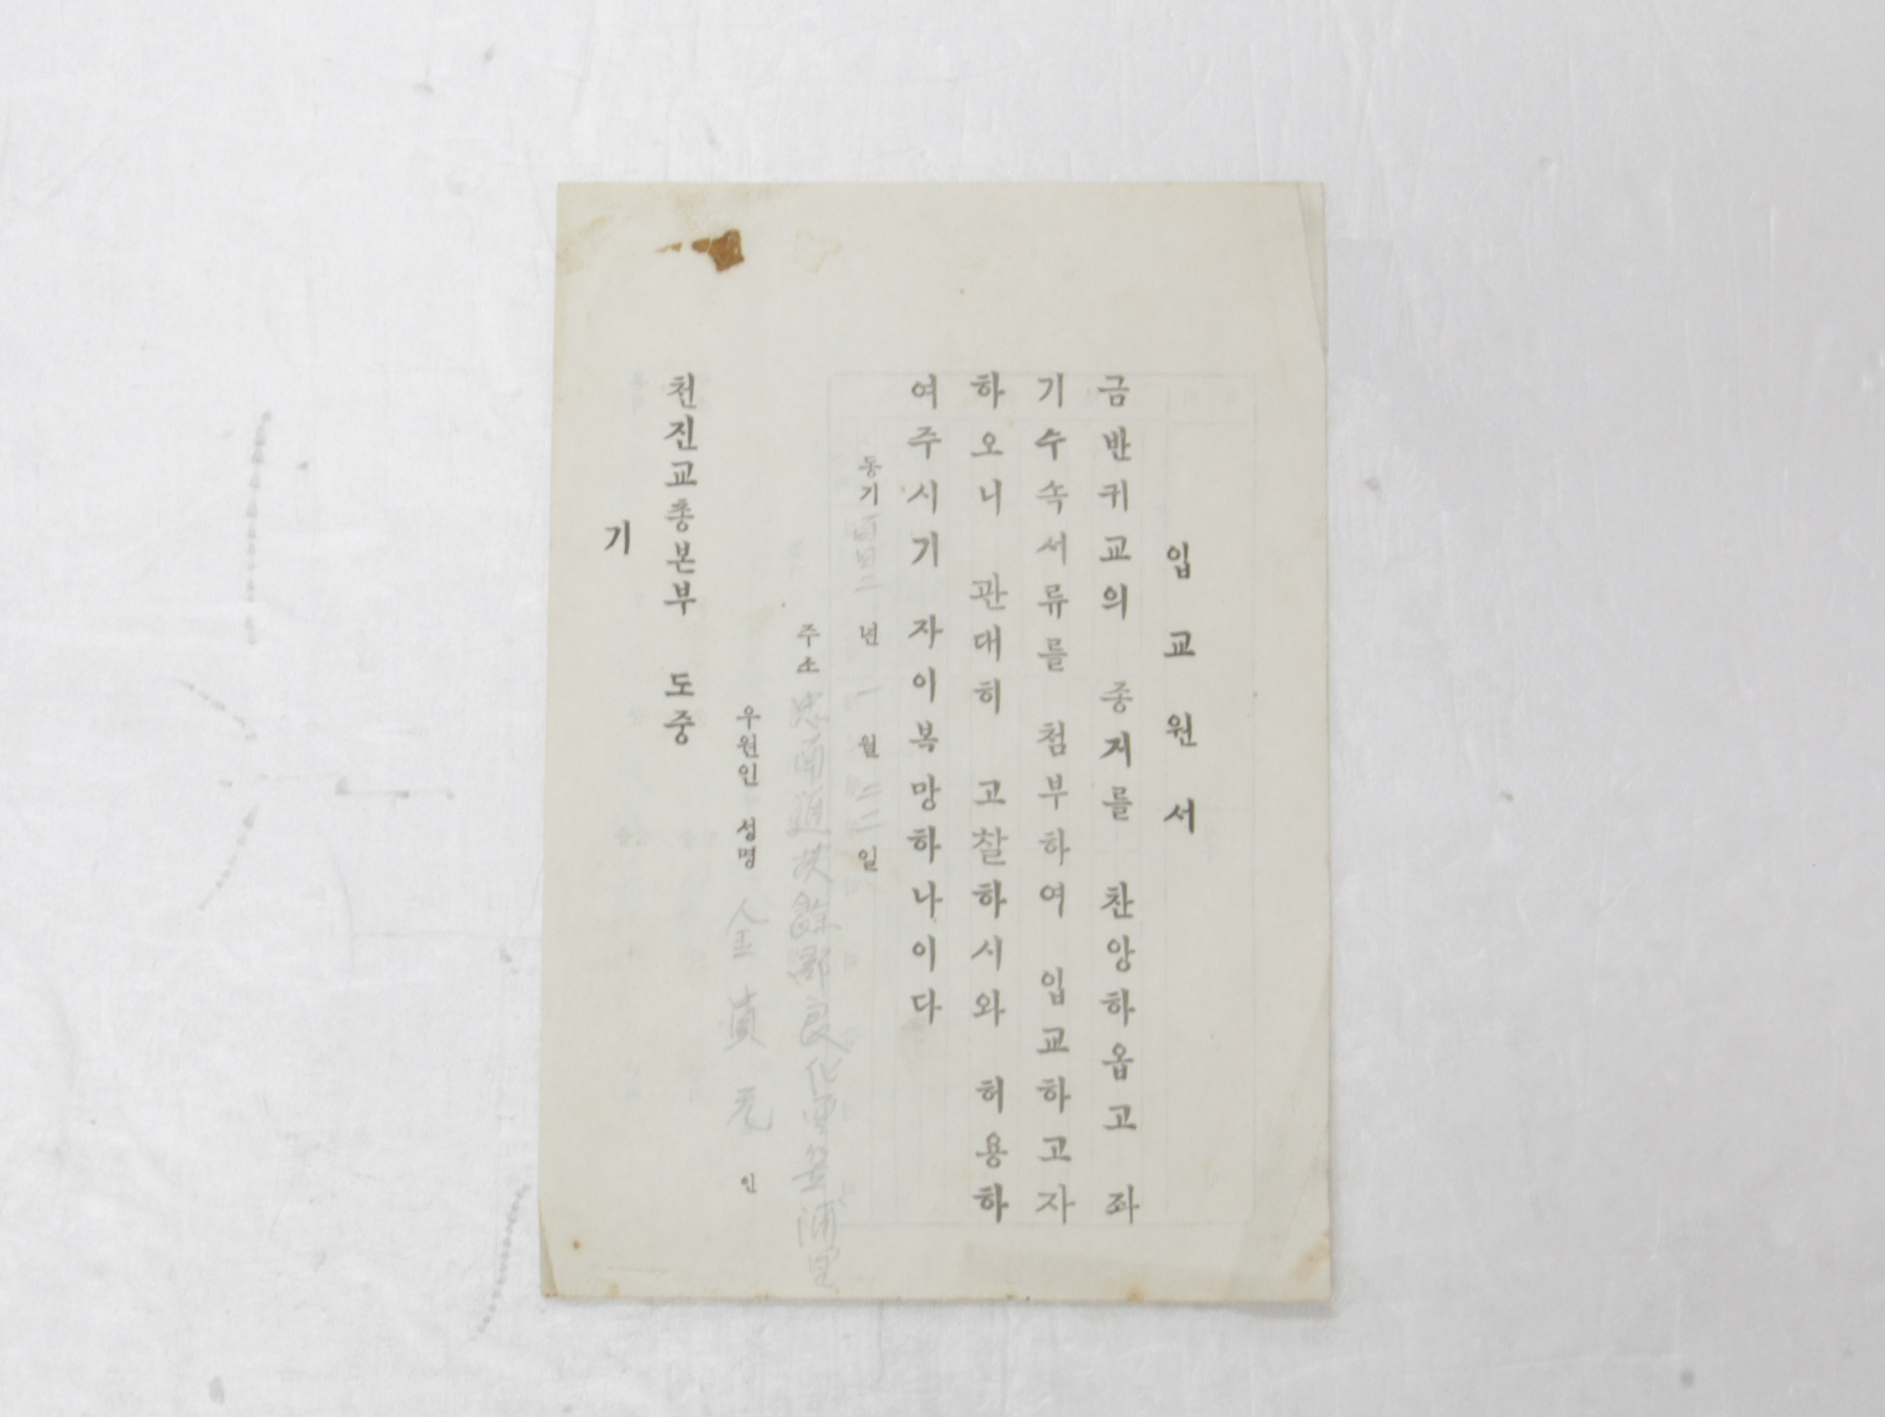 입교원서
금반귀교의 종지를 찬앙하옵고 좌
기수속서류를 첨부하여 입교하고자
하오니 관대히 고찰하시와 허용하
여주시기 자이복망하나이다
동기 四四二 년 一 월 二二 일
주소 忠南道扶餘郡良化面
우원인 성명 金 元 인
천진교총본부 도중
기